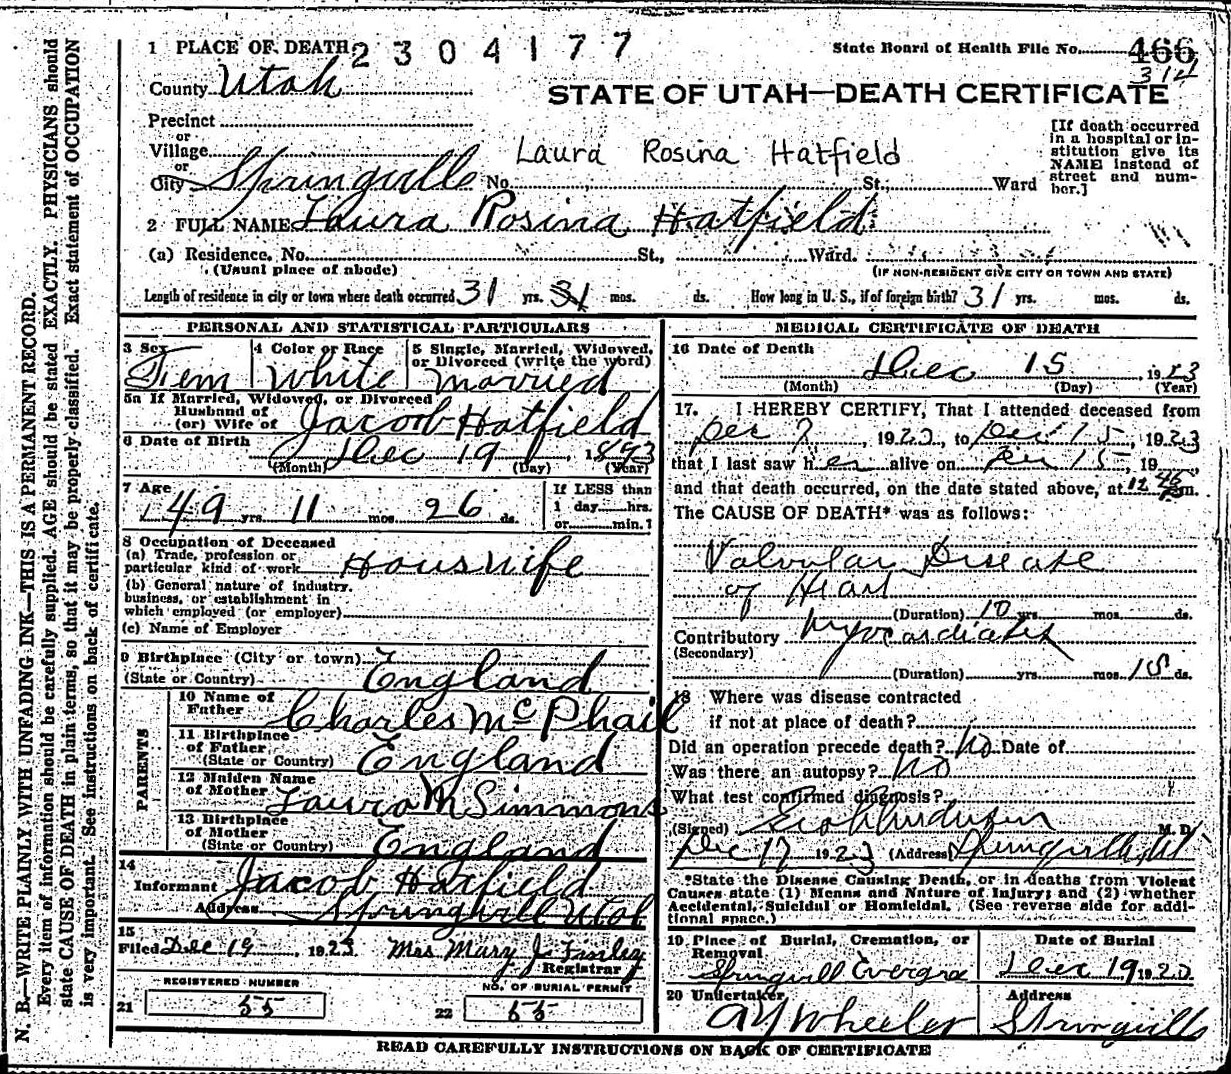 1 PLACE OF DEATH 2304177 State Board of Health File No. 466
314
County Utah
STATE OF UTAH—DEATH CERTIFICATE
Precinct
or
Village
or
City Springville No. St.; Ward
Laura Rosina Hatfield
[If death occurred in a hospital or institution give its NAME instead of street and number.]
2 FULL NAME Laura Rosina Hatfield
(a) Residence. No. St., Ward.
(Usual place of abode) (IF NON-RESIDENT GIVE CITY OR TOWN AND STATE)
Length of residence in city or town where death occurred 31 yrs. 31 mos. ds. How long in U. S., if of foreign birth? 31 yrs. mos. ds.
PERSONAL AND STATISTICAL PARTICULARS
3 Sex Fem
4 Color or Race White
5 Single, Married, Widowed, or Divorced (write the word) married
5a If Married, Widowed, or Divorced
Husband of
(or) Wife of Jacob Hatfield
6 Date of Birth Dec 19
(Month) (Day) (Year)
7 Age 49 yrs. 11 mos. 26 ds.
If LESS than
1 day....hrs.
or....min.?
8 Occupation of Deceased
(a) Trade, profession or
particular kind of work Houswife
(b) General nature of industry,
business, or establishment in
which employed (or employer)
(c) Name of Employer
9 Birthplace (City or town)
(State or Country) England
PARENTS
10 Name of
Father Charles McPhail
11 Birthplace
of Father
(State or Country) England
12 Maiden Name
of Mother Laura M Simmons
13 Birthplace
of Mother
(State or Country) England
14
Informant Jacob Hatfield
Address Springvill Utah
15
Filed Dec 19, 1923 Mrs Mary J Finley
Registrar
REGISTERED NUMBER
21 55
NO. OF BURIAL PERMIT
22 55
MEDICAL CERTIFICATE OF DEATH
16 Date of Death Dec 15, 1923
(Month) (Day) (Year)
17. I HEREBY CERTIFY, That I attended deceased from
Dec 7, 1923, to Dec 15, 1923
that I last saw her alive on Dec 15, 19
and that death occurred, on the date stated above, at 12 45 m.
The CAUSE OF DEATH* was as follows:
Valvular Disease
of Heart
(Duration) 10 yrs. mos. ds.
Contributory Myocardiatis
(Secondary)
(Duration) yrs. mos. 15 ds.
18 Where was disease contracted
if not at place of death?
Did an operation precede death? No Date of
Was there an autopsy? No
What test confirmed diagnosis?
(Signed) M. D.
Dec 17 1923 (Address) Springville Ut
*State the Disease Causing Death, or in deaths from Violent
Causes state (1) Means and Nature of Injury; and (2) whether
Accidental, Suicidal or Homicidal. (See reverse side for addi-
tional space.)
19 Place of Burial, Cremation, or
Removal
Springvill Evergre
Date of Burial
Dec 19 192
20 Undertaker
A Y Wheeler
Address
Springville
READ CAREFULLY INSTRUCTIONS ON BACK OF CERTIFICATE
N. B.—WRITE PLAINLY WITH UNFADING INK—THIS IS A PERMANENT RECORD.
Every item of information should be carefully supplied. AGE should be stated EXACTLY. PHYSICIANS should
state CAUSE OF DEATH in plain terms, so that it may be properly classified. Exact statement of OCCUPATION
is very important. See instructions on back of certificate.